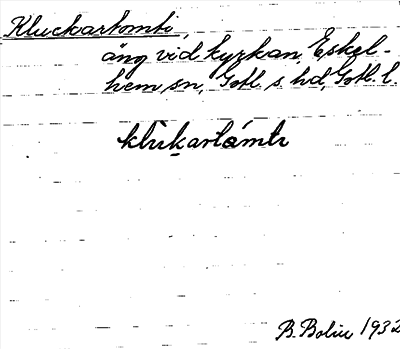 Kluckartomti,
äng vid kyrkan, Eskel-
hem sn, Gotl. s. hd, Gotl. l.
klùkartómtı
B. Bolin 1932